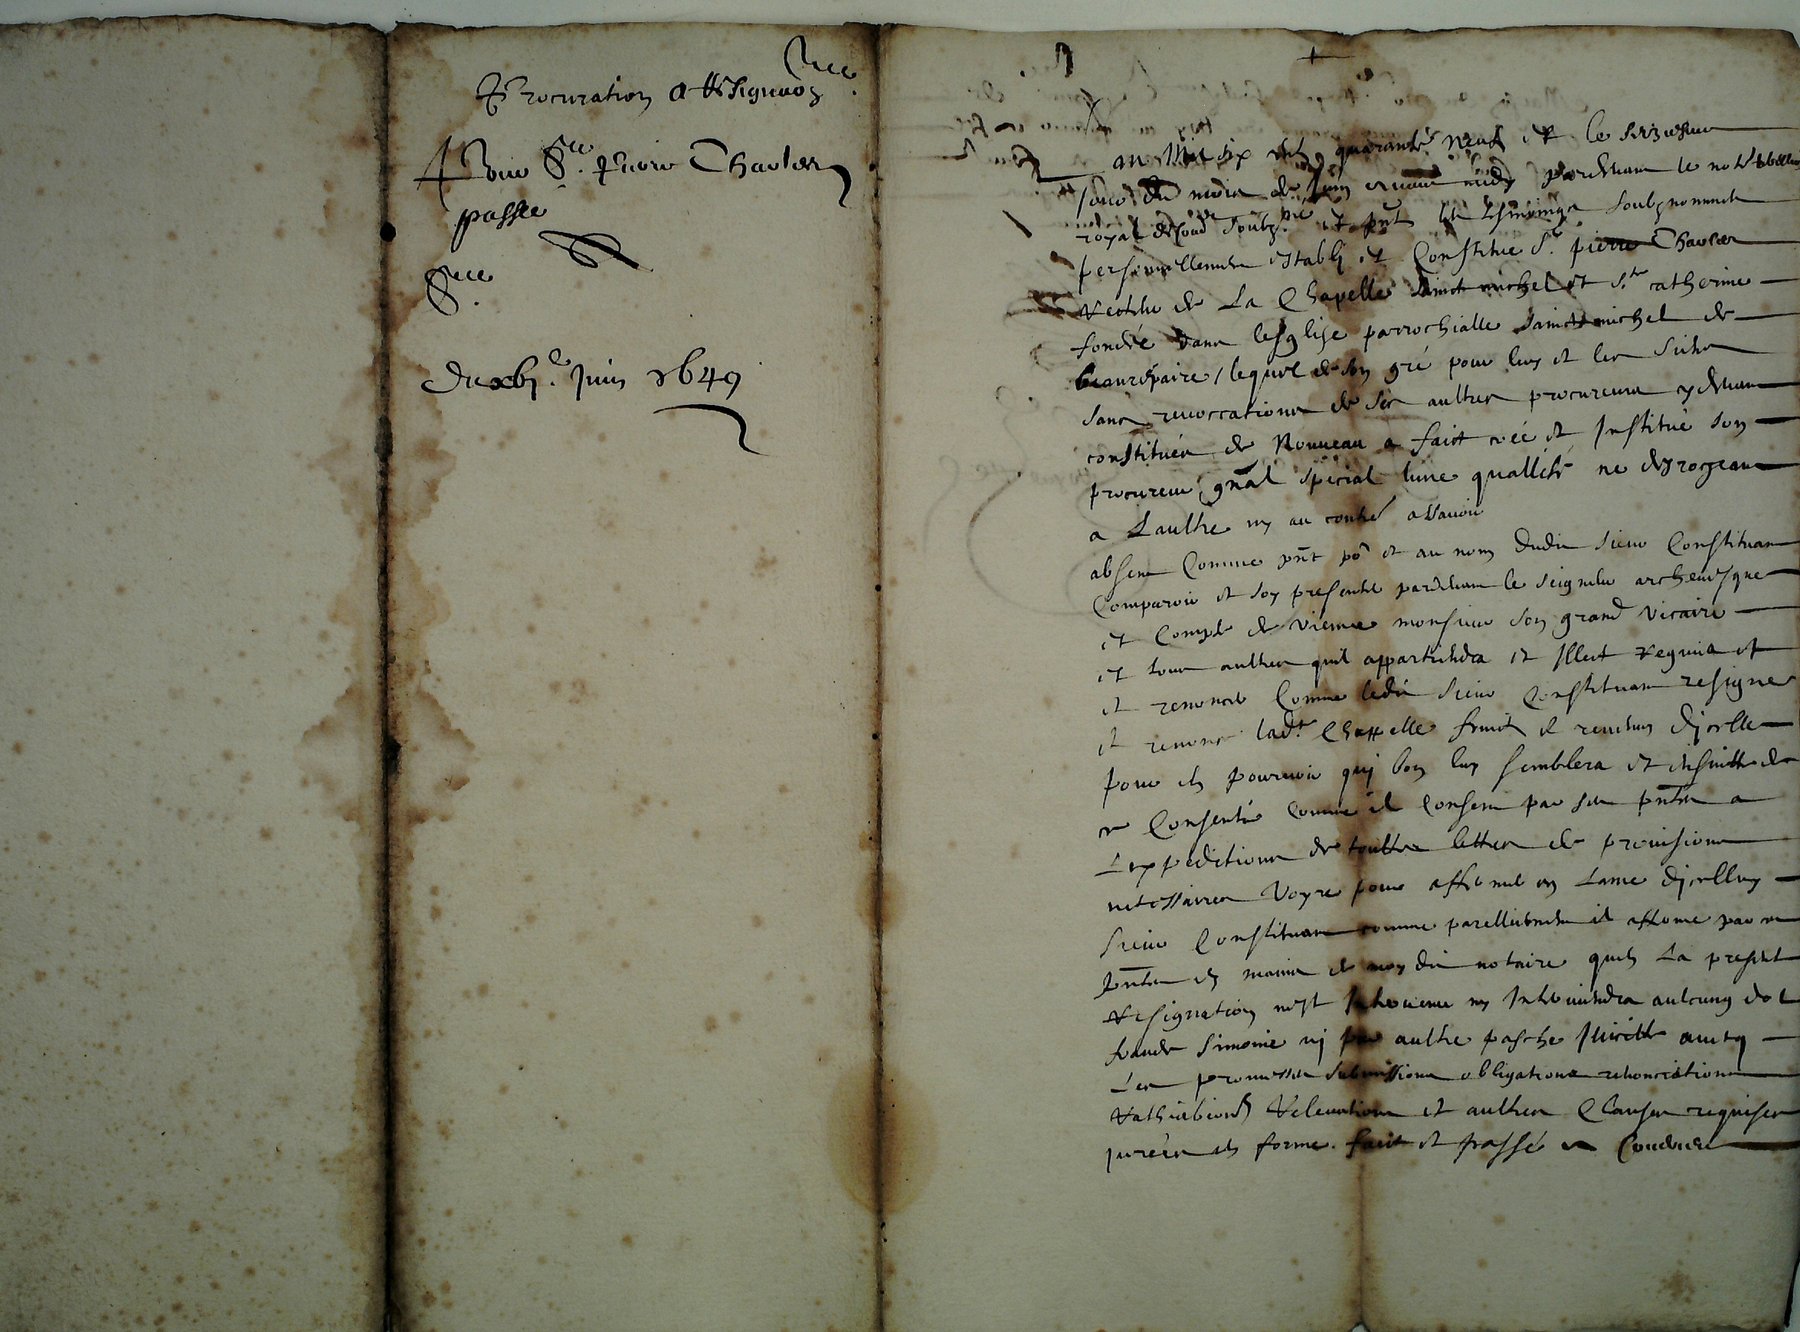 Procuration
Pour Sr. pierre Charles
passée
Du xbj.e Juin 1649
an Mil six cent quarante Neuf et le seiziesme
jour du mois de Juin avant midy pardevant le notre
royal soubzné et pnt les tesmoings soubznommés
personnellement estably et Constitue Sr. pierre Charles
recteur de La Chapelle sainct michel et Ste catherine
fondée dans lesglise parrochialle sainct michel de
beaurepaire / lequel de son gré pour luy et les siens
sans revoccations de ses aultres procureurs cydevant
constitués de Nouveau a faict créé et Institué son
procureur gnal spécial lune quallité ne desrogeant
a Laultre ny au contre assavoir
absent Comme pnt po et au nom dudit sieur Constituant
Comparoir et soy presenter pardevant le seigneur archevesque
et Compte de vienne monsieur son grand vicaire
et tous aultres quil appartiendra et Illect
et renoncer Comme ledit sieur Constituant resigne
et renonce ladte Chappelle fruicts et revenus dicelle
pour en pourvoir quj bon luy semblera et ensuitte de
ce Consentir Comme il Consent par ses pntes a
Lexpeditions de touttes lettres de provisions
necessaires voyre pour affirmer en Lame dicelluy
sieur Constituant comme pareillement il afferme par ces
pntes es mains de moy dit notaire quen La presente
resignation nest Intervenu ny Interviendra aulcung dol
fraude simonie nj par aultre pasche Illicitte avecq
Les promesses submissions obligations renonciations
et aultres Clauses requises
jurées en forme. faict et passé a Coudrieu